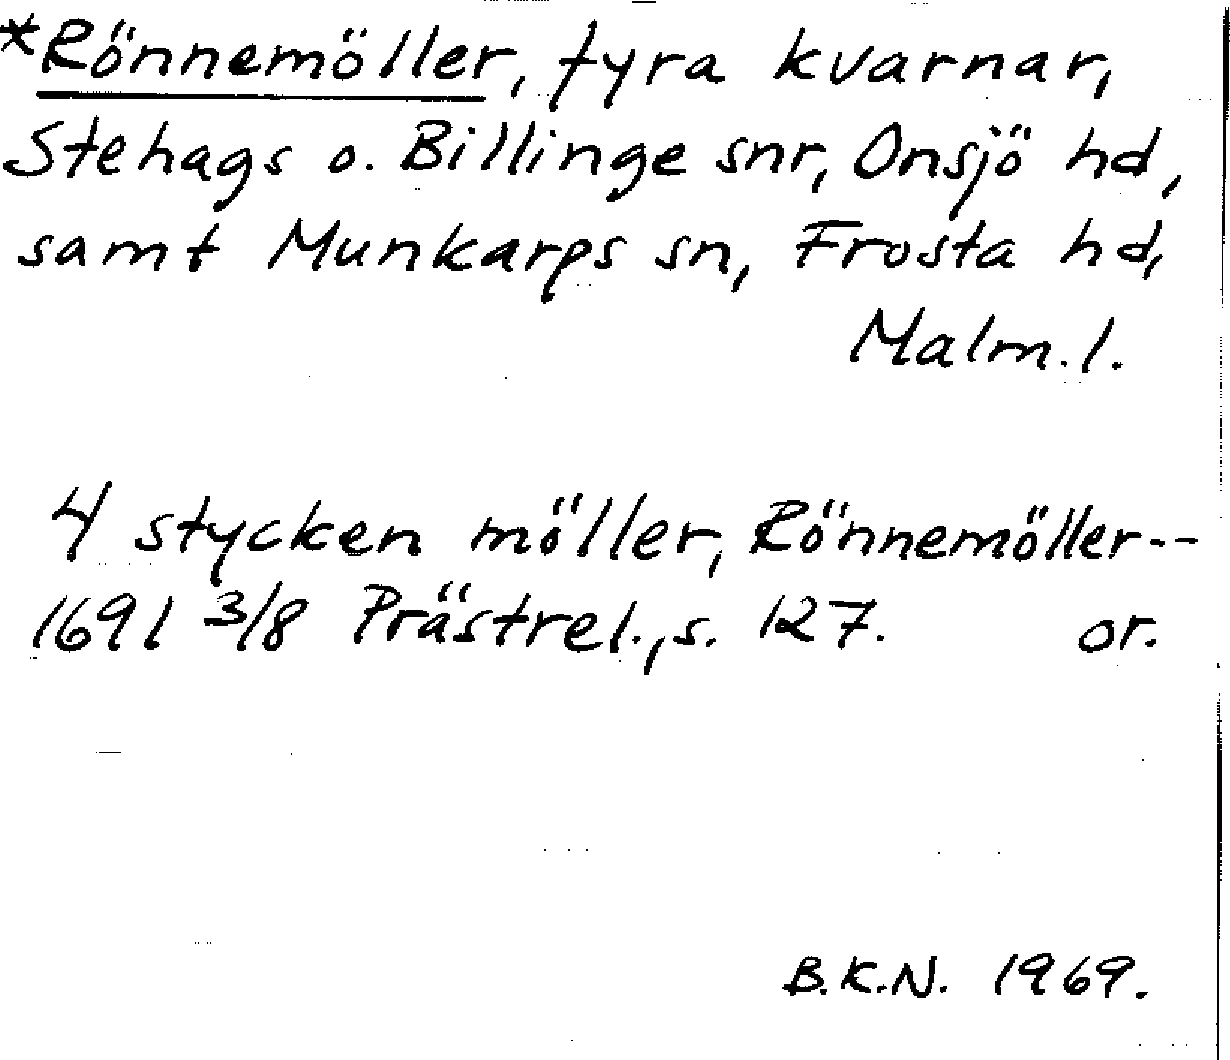 *Rönnemöller, fyra kvarnar,
Stehags o. Billinge snr, Onsjö hd,
samt Munkarps sn, Frosta hd,
Malm.l.
4 stycken möller, Rönnemöller--
1691 3/8 Prästrel., s. 127. or.
B.K.N. 1969.